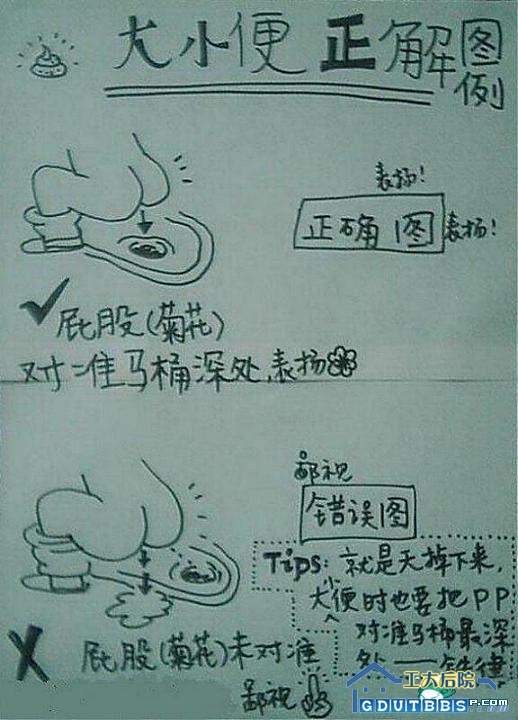 大小便正解图例
表扬!
正确图 表扬!
屁股(菊花)
对准马桶深处,表扬
鄙视
错误图
Tips: 就是天掉下来,
大便时也要把PP
对准马桶最深
处——铁律
屁股(菊花)未对准
鄙视
工大后院
GDUTBBS.com